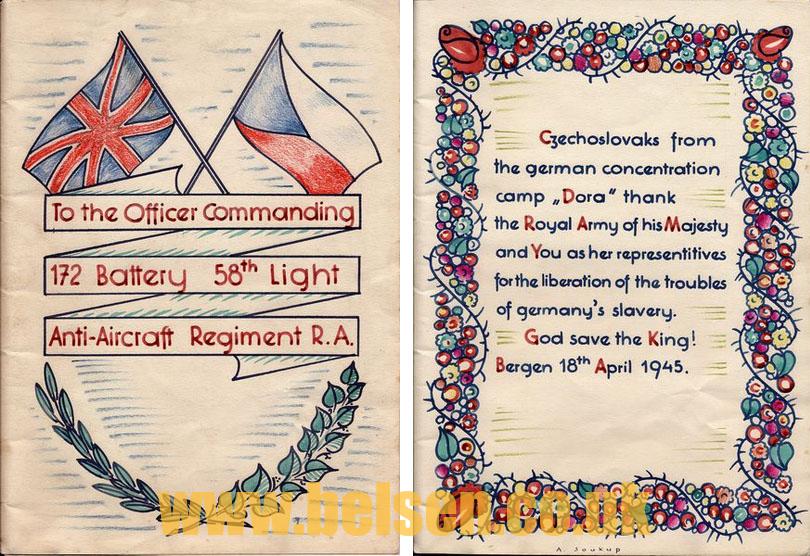 To the Officer Commanding
172 Battery 58th Light
Anti-Aircraft Regiment R.A.
Czechoslovaks from
the german concentration
camp „Dora“ thank
the Royal Army of his Majesty
and You as her representitives
for the liberation of the troubles
of germany's slavery.
God save the King!
Bergen 18th April 1945.
www.belsen.co.uk
A. Soukup